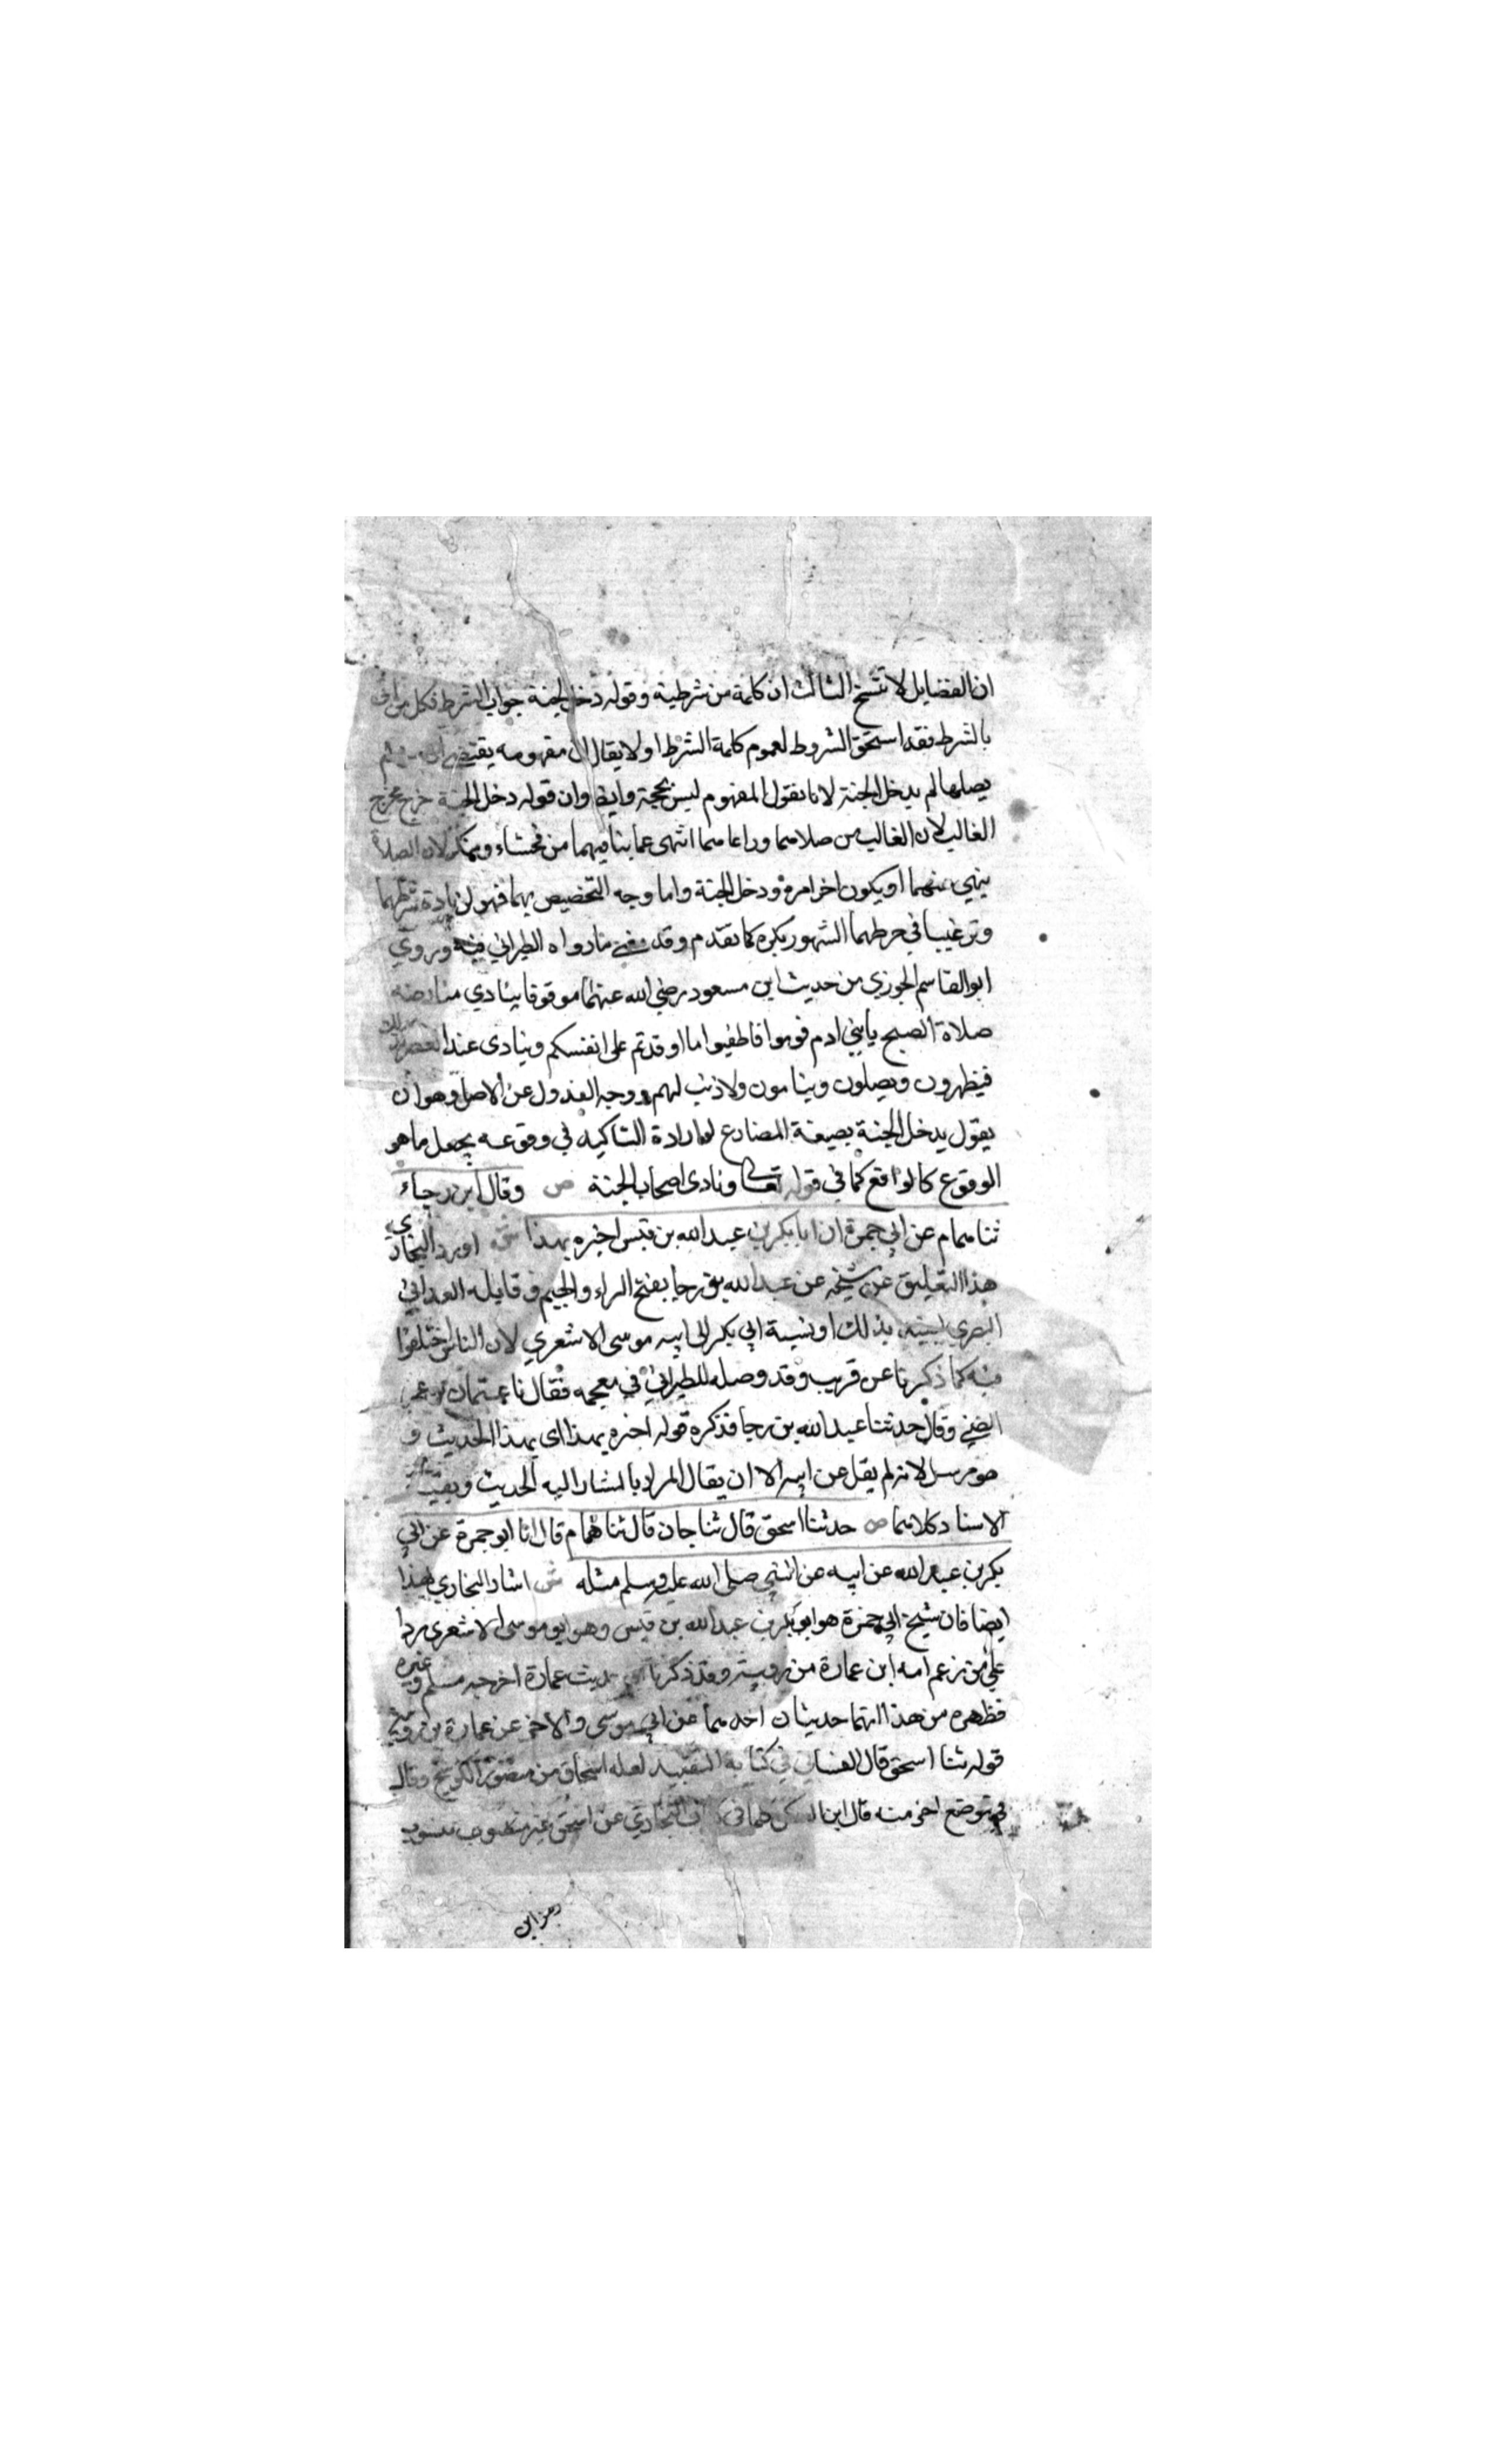 ان الفضايل لا تنسخ الثالث ان كلمة من شرطية وقوله دخل الجنة جواب الشرط فكل من اتى
بالشرط فقد استحق المشروط لعموم كلمة الشرط او لا يقال ان مفهومه يقتضي ان من لم
يصلهما لم يدخل الجنة لانا نقول المفهوم ليس بحجة وايضا وان قوله دخل الجنة خرج مخرج
الغالب لان الغالب من صلاهما وراعاهما انتهى عما ينافيهما من فحشاء ومنكر لان الصلاة
ينهي عنهما او يكون اخر امره ودخل الجنة واما وجه التخصيص بهما فهو لزيادة شرفهما
وترغيبا في حفظهما الشهور بكره كما تقدم وقد مضى ما رواه الطبراني فيه وروي
ابو القاسم الجوزي من حديث ابن مسعود رضي الله عنهما موقوفا ينادي مناد عند
صلاة الصبح يا بني ادم قوموا فاطفيوا ما اوقدتم على انفسكم وينادى عند العصر كذلك
فيتطهرون ويصلون وينامون ولا ذنب لهم ووجه العدول عن الاصل وهو ان
يقول يدخل الجنة بصيغة المضارع لارادة التاكيد في وقوعه بجعل ما هو
الوقوع كالواقع كما في قوله تعالى ونادى اصحاب الجنة ص وقال ابن رجاء
ثنا همام عن ابي جمرة ان ابا بكر بن عبد الله بن قيس اخبره بهذا ش اورد البخاري
هذا التعليق عن شيخه عن عبد الله بن رجا بفتح الراء والجيم قايله الغداني
البصري ليبينه بذلك او نسبة ابي بكر الى ابيه موسى الاشعري لان الناس اختلفوا
فيه كما ذكرنا عن قريب وقد وصله للطبراني في معجمه فقال نا عثمان بن عمر
الضبي وقال حدثنا عبد الله بن رجا فذكره قوله اخبره بهذا اى بهذا الحديث و
هو مرسل لانه لم يقل عن ابيه الا ان يقال المراد بالمشار اليه الحديث وبقية
الاسناد كلاهما ص حدثنا اسحق قال ثنا حبان قال ثنا همام قال انا ابو جمرة عن ابي
بكر بن عبد الله عن ابيه عن النبي صلى الله عليه وسلم مثله ش اشار البخاري بهذا
ايضا فان شيخ ابي جمرة هو ابو بكر بن عبد الله بن قيس وهو ابو موسى الاشعري ردا
على من زعم انه ابن عمارة من رويبة وقد ذكرنا حديث عمارة اخرجه مسلم وغيره
فظهر من هذا انهما حديثان احدهما عن ابي موسى والاخر عن عمارة بن رويبة
قوله ثنا اسحق قال الغساني في كتابه التقييد لعله اسحاق من منصور الكوسج وقال
في موضع اخر منه قال ابن السكن كلما في كتاب البخاري عن اسحق غير منسوب
بهز ابن